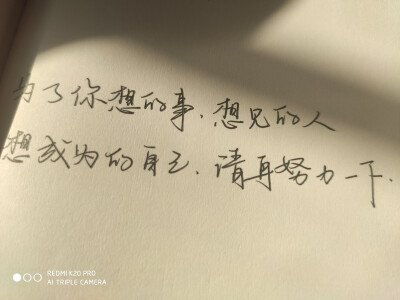 为了你想的事.想见的人
想成为的自己.请再努力一下.
REDMI K20 PRO
AI TRIPLE CAMERA